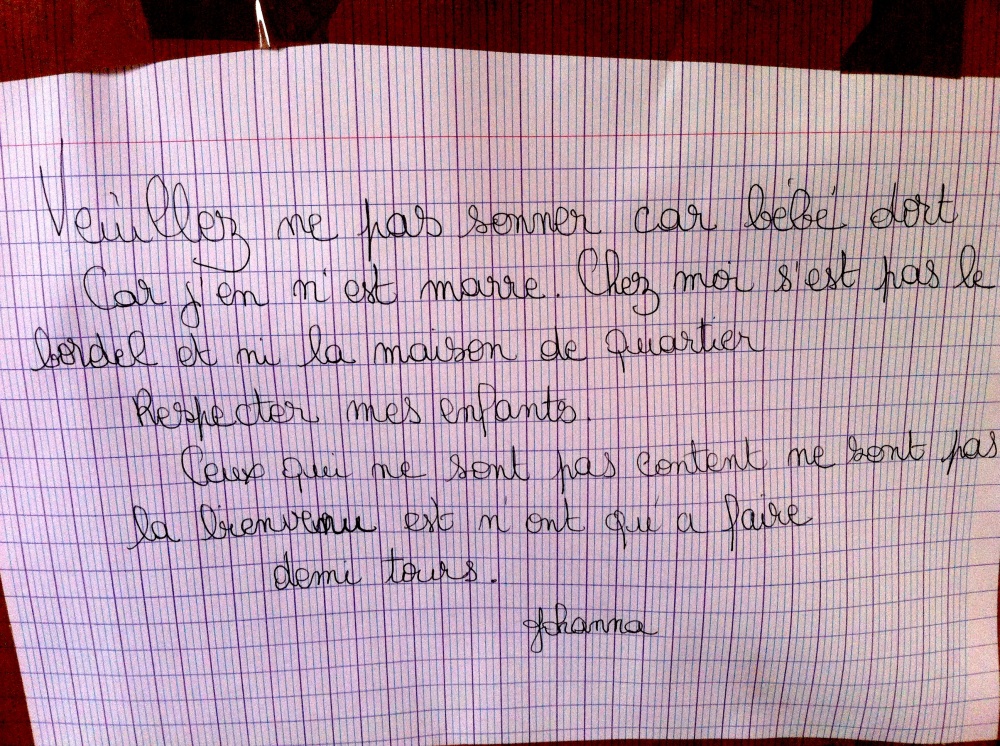 Veuillez ne pas sonner car bébé dort
Car j'en n'est marre. Chez moi s'est pas le
bordel et ni la maison de quartier
Respecter mes enfants.
Ceux qui ne sont pas content ne sont pas
la bienvenu est n'ont qu'a faire
demi tours.
Johanna